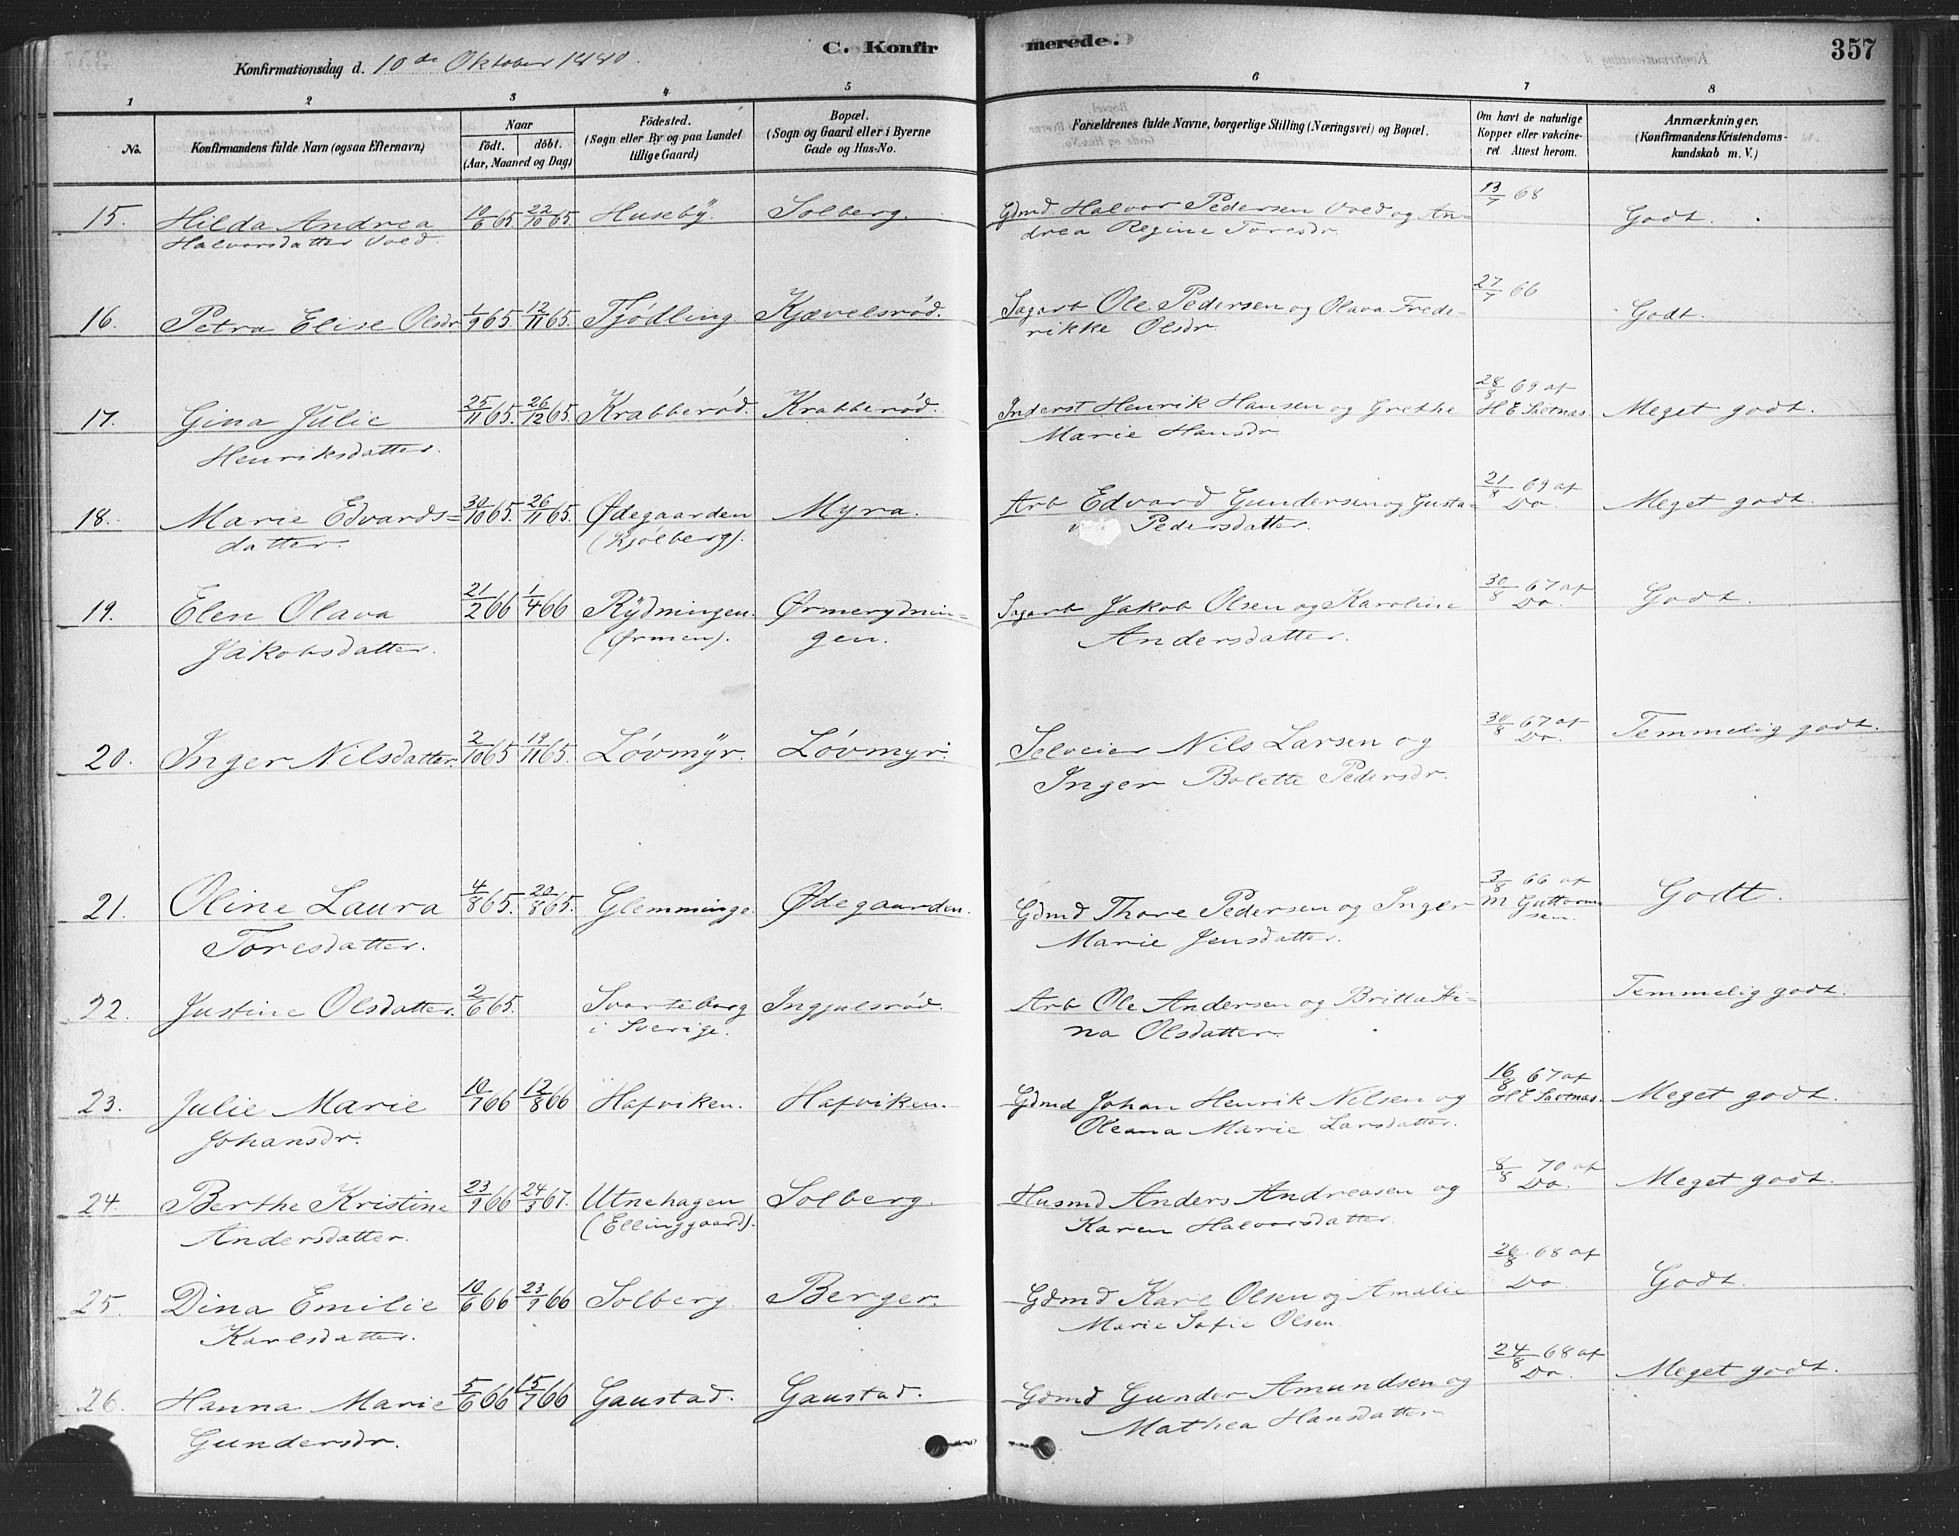 C. Konfirmerede.
357
Konfirmationsdag d. 10de Oktober 1880.
1 2 3 4 5 6 7 8
No.
Konfirmandens fulde Navn (ogsaa Efternavn)
Naar
födt. döbt.
(Aar, Maaned og Dag)
Födested.
(Sogn eller By og paa Landet
tillige Gaard)
Bopæl.
(Sogn og Gaard eller i Byerne
Gade og Hus-No.
Forældrenes fulde Navne, borgerlige Stilling (Næringsvei) og Bopæl.
Om havt de naturlige
Kopper eller vakcine-
ret Attest herom.
Anmærkninger.
(Konfirmandens Kristendoms-
kundskab m. V.)
15. Hilda Andrea 10/6 65. 22/10 65. Huseby. Solberg. Gdmd Halvor Pedersen Vold og An- 13/7 68 Godt.
Halvorsdatter Vold. drea Regine Toresdr.
16. Petra Elise Olsdr 1/9 65 12/11 65. Tjödling. Kjævelsröd. Sagarb Ole Pedersen og Olava Frede- 27/7 66 Godt.
rikke Olsdr.
17. Gina Julie 25/11 65. 26/12 65. Krabberöd. Krabberöd. Inderst Henrik Hansen og Grethe 28/8 69 af Meget godt.
Henriksdatter. Marie Hansdr. H E
18. Marie Edvards- 30/10 65. 26/11 65. Ødegaarden Myra. Arb Edvard Gundersen og Gusta- 21/8 69 af Meget godt.
datter. (Kjölberg). Pedersdatter. Do.
19. Elen Olava 21/2 66 1/4 66 Rydningen. Ørmerydnin- Sagarb Jakob Olsen og Karoline 30/8 67 af Godt.
Jakobsdatter. (Ørmen). gen. Andersdatter. Do.
20. Inger Nilsdatter. 2/10 65 19/11 65. Lövmyr. Lövmyr. Selveier Nils Larsen og 30/8 67 af Temmelig godt.
Inger Bolette Pedersdr. Do.
21. Oline Laura 4/8 65. 20/8 65. Glemminge. Ødegaarden. Gdmd Thore Pedersen og Inger 3/8 66 af Godt.
Toresdatter. Marie Jensdatter. M Guttorm-
sen.
22. Justine Olsdatter. 2/6 65. Svarteborg Ingjulsröd. Arb Ole Andersen og Britta Sti- Temmelig godt.
i Sverige. na Olsdatter.
23. Julie Marie 10/7 66 12/8 66 Hafviken. Hafviken. Gdmd Johan Henrik Nilsen og 16/8 67 af Meget godt.
Johansdr. Oleana Marie Larsdatter. H E
24. Berthe Kristine 23/9 66 24/3 67. Utnehagen Solberg. Husmd Anders Andreasen og 8/8 70 af Meget godt.
Andersdatter. (Ellinggaard). Karen Halvorsdatter. Do.
25. Dina Emilie 10/6 66 23/9 66 Solberg. Berger. Gdmd Karl Olsen og Amalie 26/8 68 af Godt.
Karlsdatter. Marie Sofie Olsen. Do.
26. Hanna Marie 5/6 66 15/7 66 Gaustad. Gaustad. Gdmd Gunder Amundsen og 24/8 68 af Meget godt.
Gundersdr. Mathea Hansdatter Do.